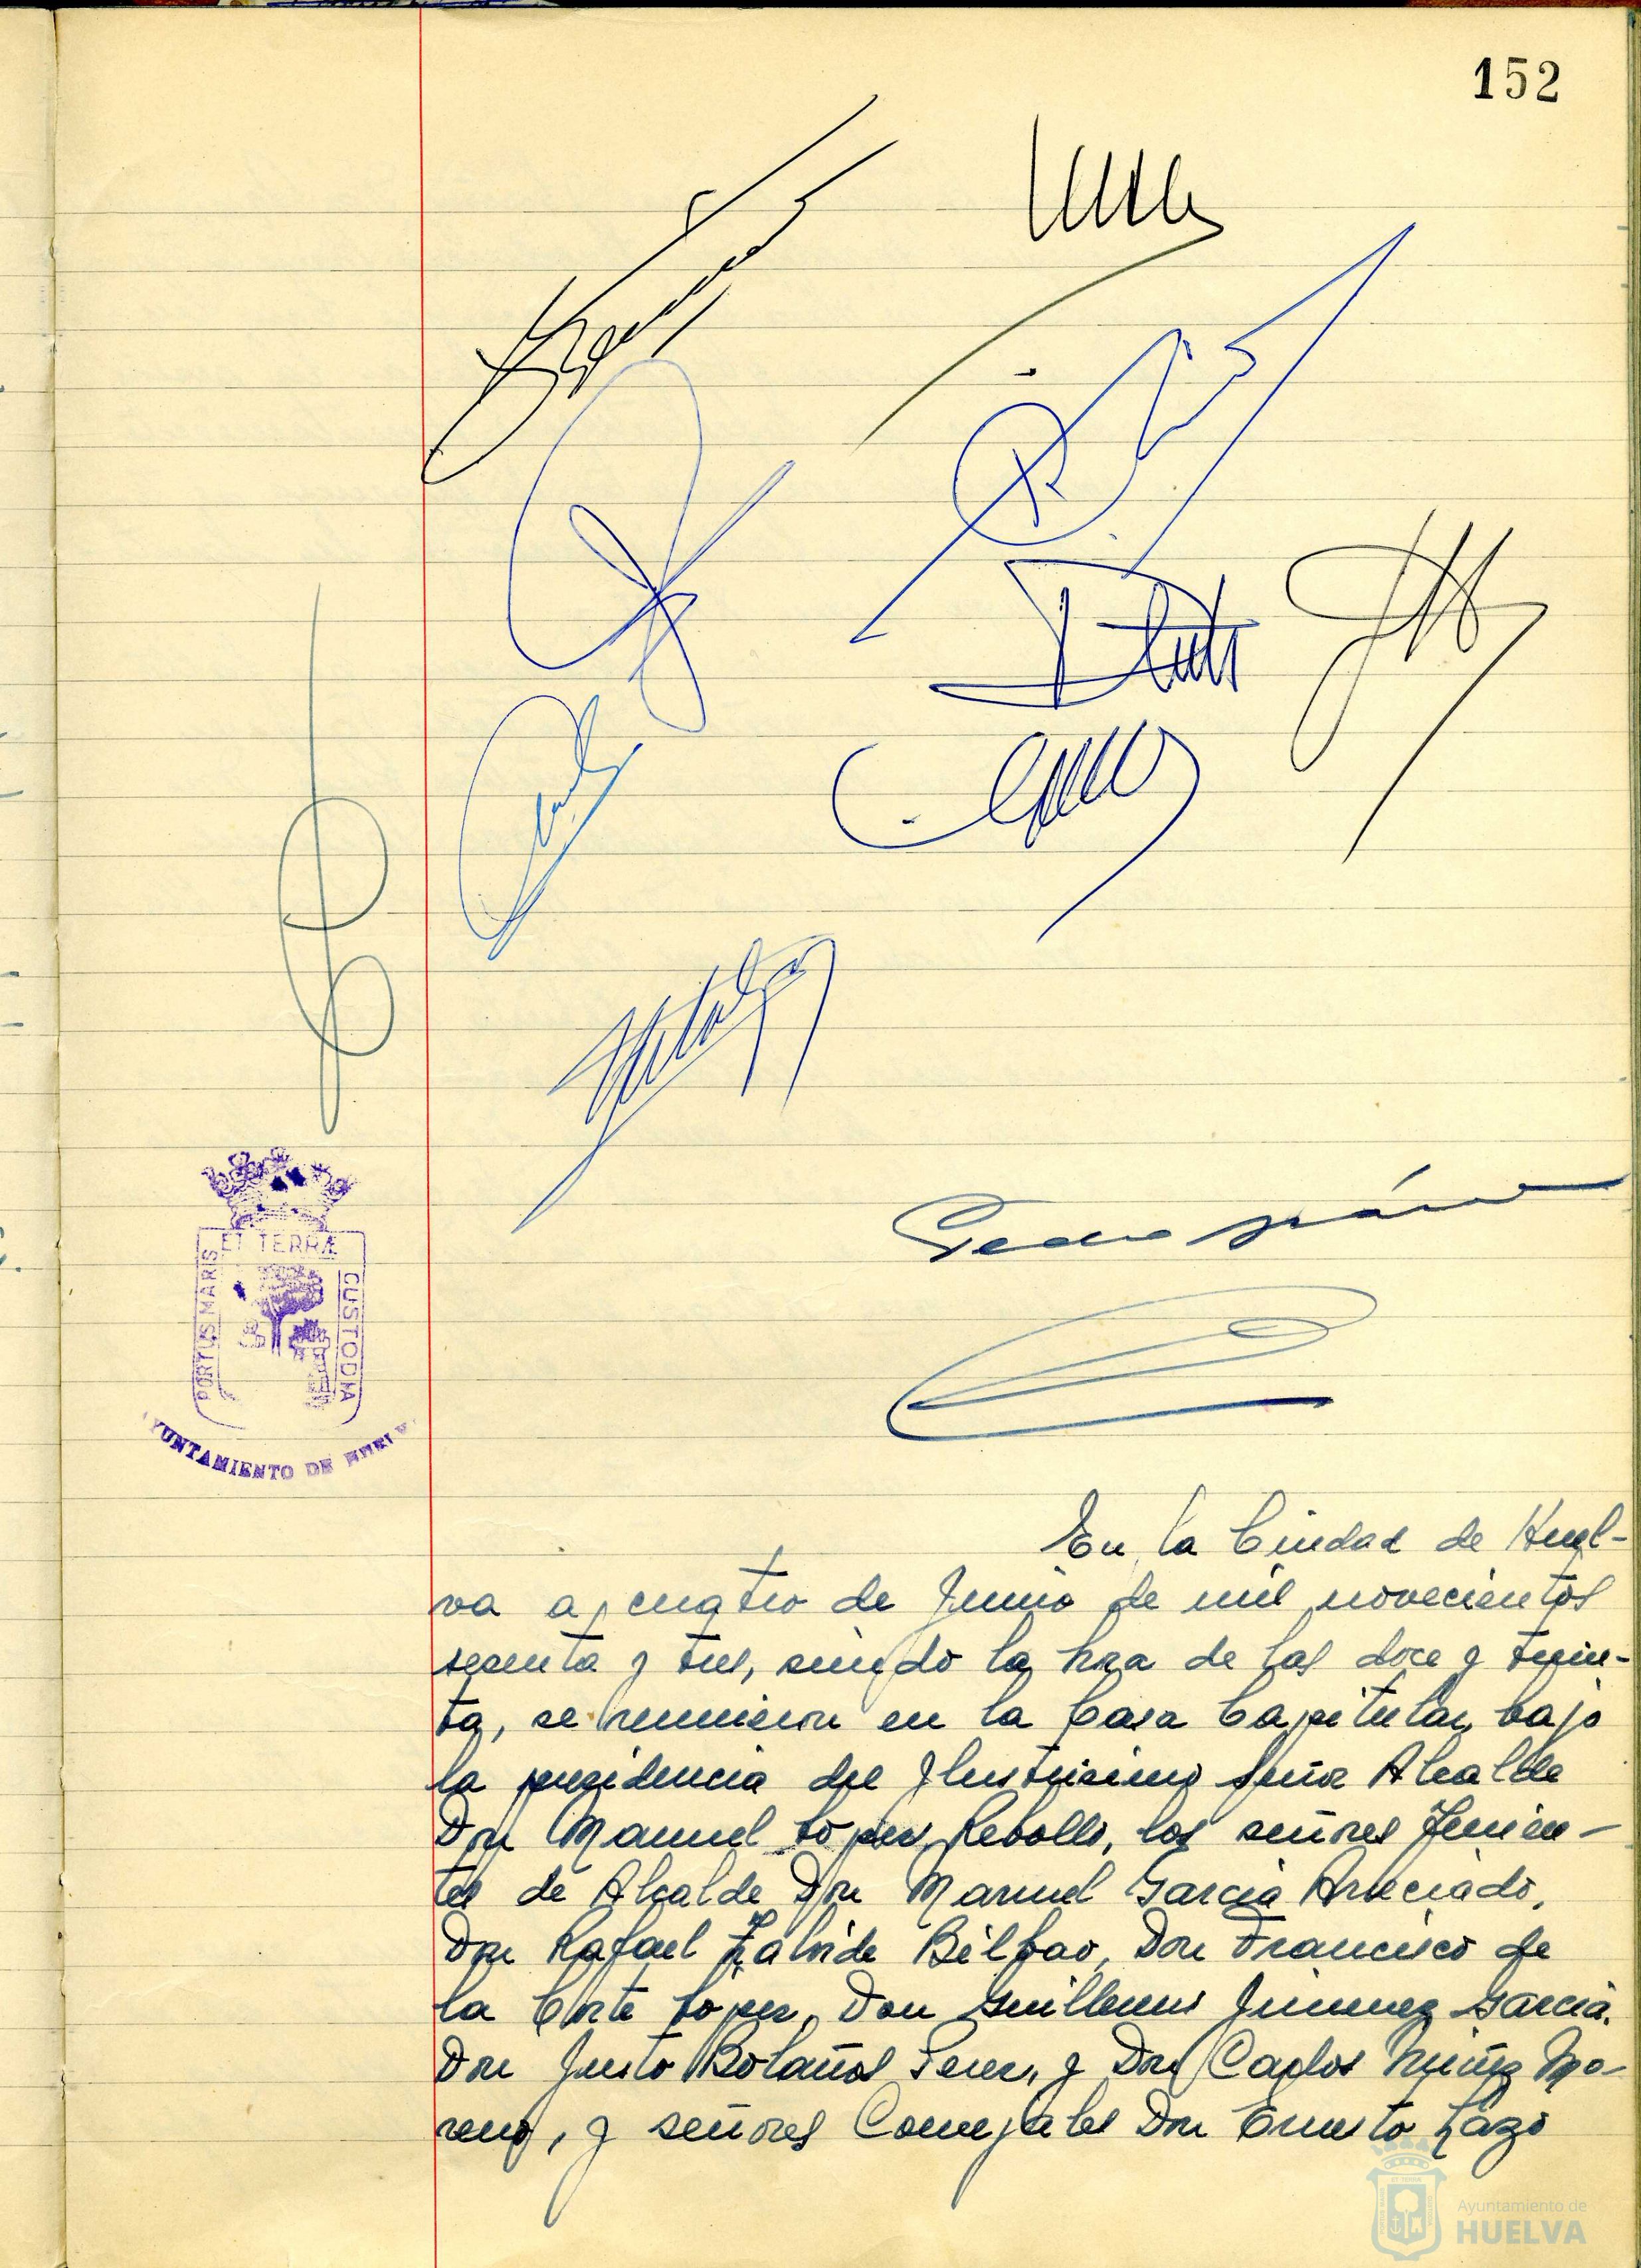 152
ET TERRÆ
PORTUS MARIS
CUSTODIA
AYUNTAMIENTO DE HUELVA
En la Ciudad de Huel-
va a cuatro de Junio de mil novecientos
sesenta y tres, siendo la hora de las doce y trein-
ta, se reunieron en la Casa Capitular, bajo
la presidencia del Ilustrisimo señor Alcalde
Don Manuel Lopez Rebollo, los señores Tenien-
tes de Alcalde Don Manuel Garcia Arreciado,
Don Rafael Zalvide Bilbao, Don Francisco de
la Corte Lopez, Don Guillermo Jimenez Garcia,
Don Justo Bolaños Perez, y Don Carlos Muñiz Mo-
reno, y señores Concejales Don Ernesto Lazo
Ayuntamiento de
HUELVA